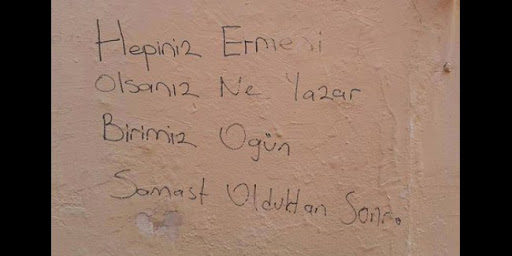 Hepiniz Ermeni
Olsanız Ne Yazar
Birimiz Ogün
Samast Olduktan Sonra.